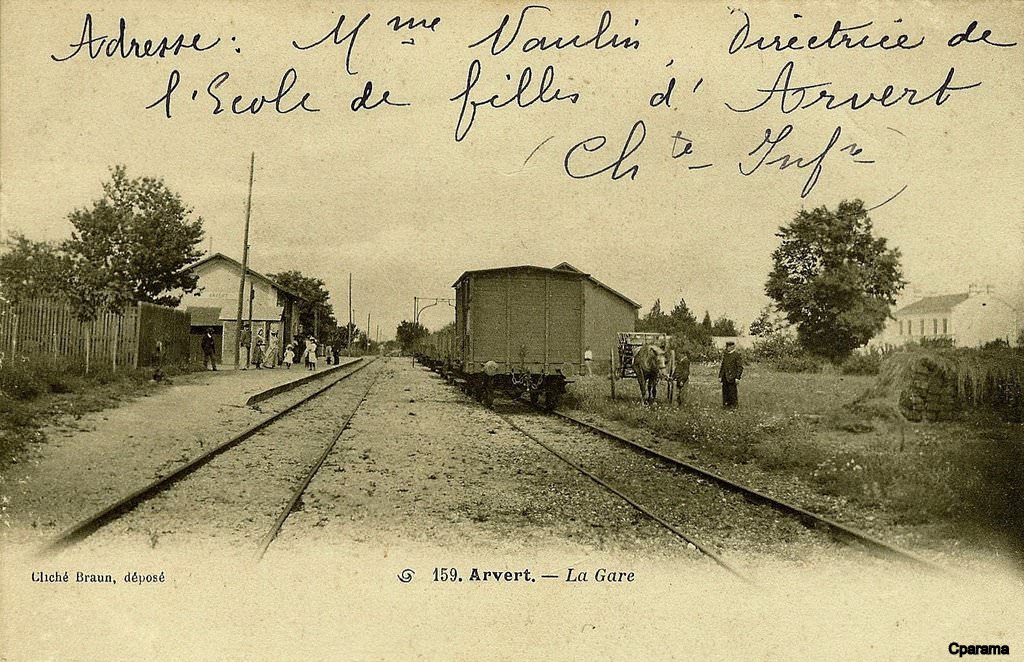 Adresse : Mme Vaulin Directrice de
l'Ecole de filles d'Arvert
Chte- Infre
ARVERT
Cliché Braun, déposé
159. Arvert. — La Gare
Cparama